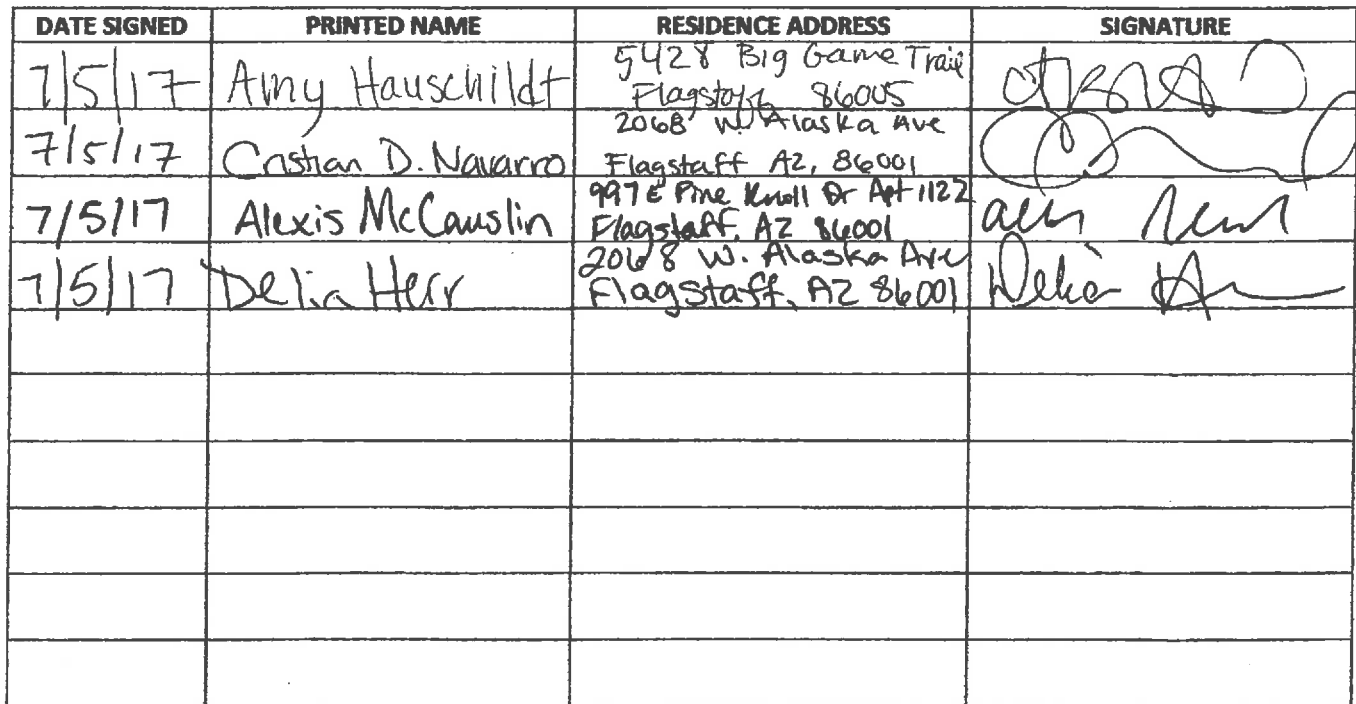 DATE SIGNED PRINTED NAME RESIDENCE ADDRESS SIGNATURE
7/5/17 Amy Hauschildt 5428 Big Game Trail
Flagstaff, 86005
7/5/17 Cristian D. Navarro 2068 W. Alaska Ave
Flagstaff AZ, 86001
7/5/17 Alexis McCauslin 997 E Pine Knoll Dr Apt 1122
Flagstaff, AZ 86001
7/5/17 Delia Herr 2068 W. Alaska Ave
Flagstaff, AZ 86001 Delia